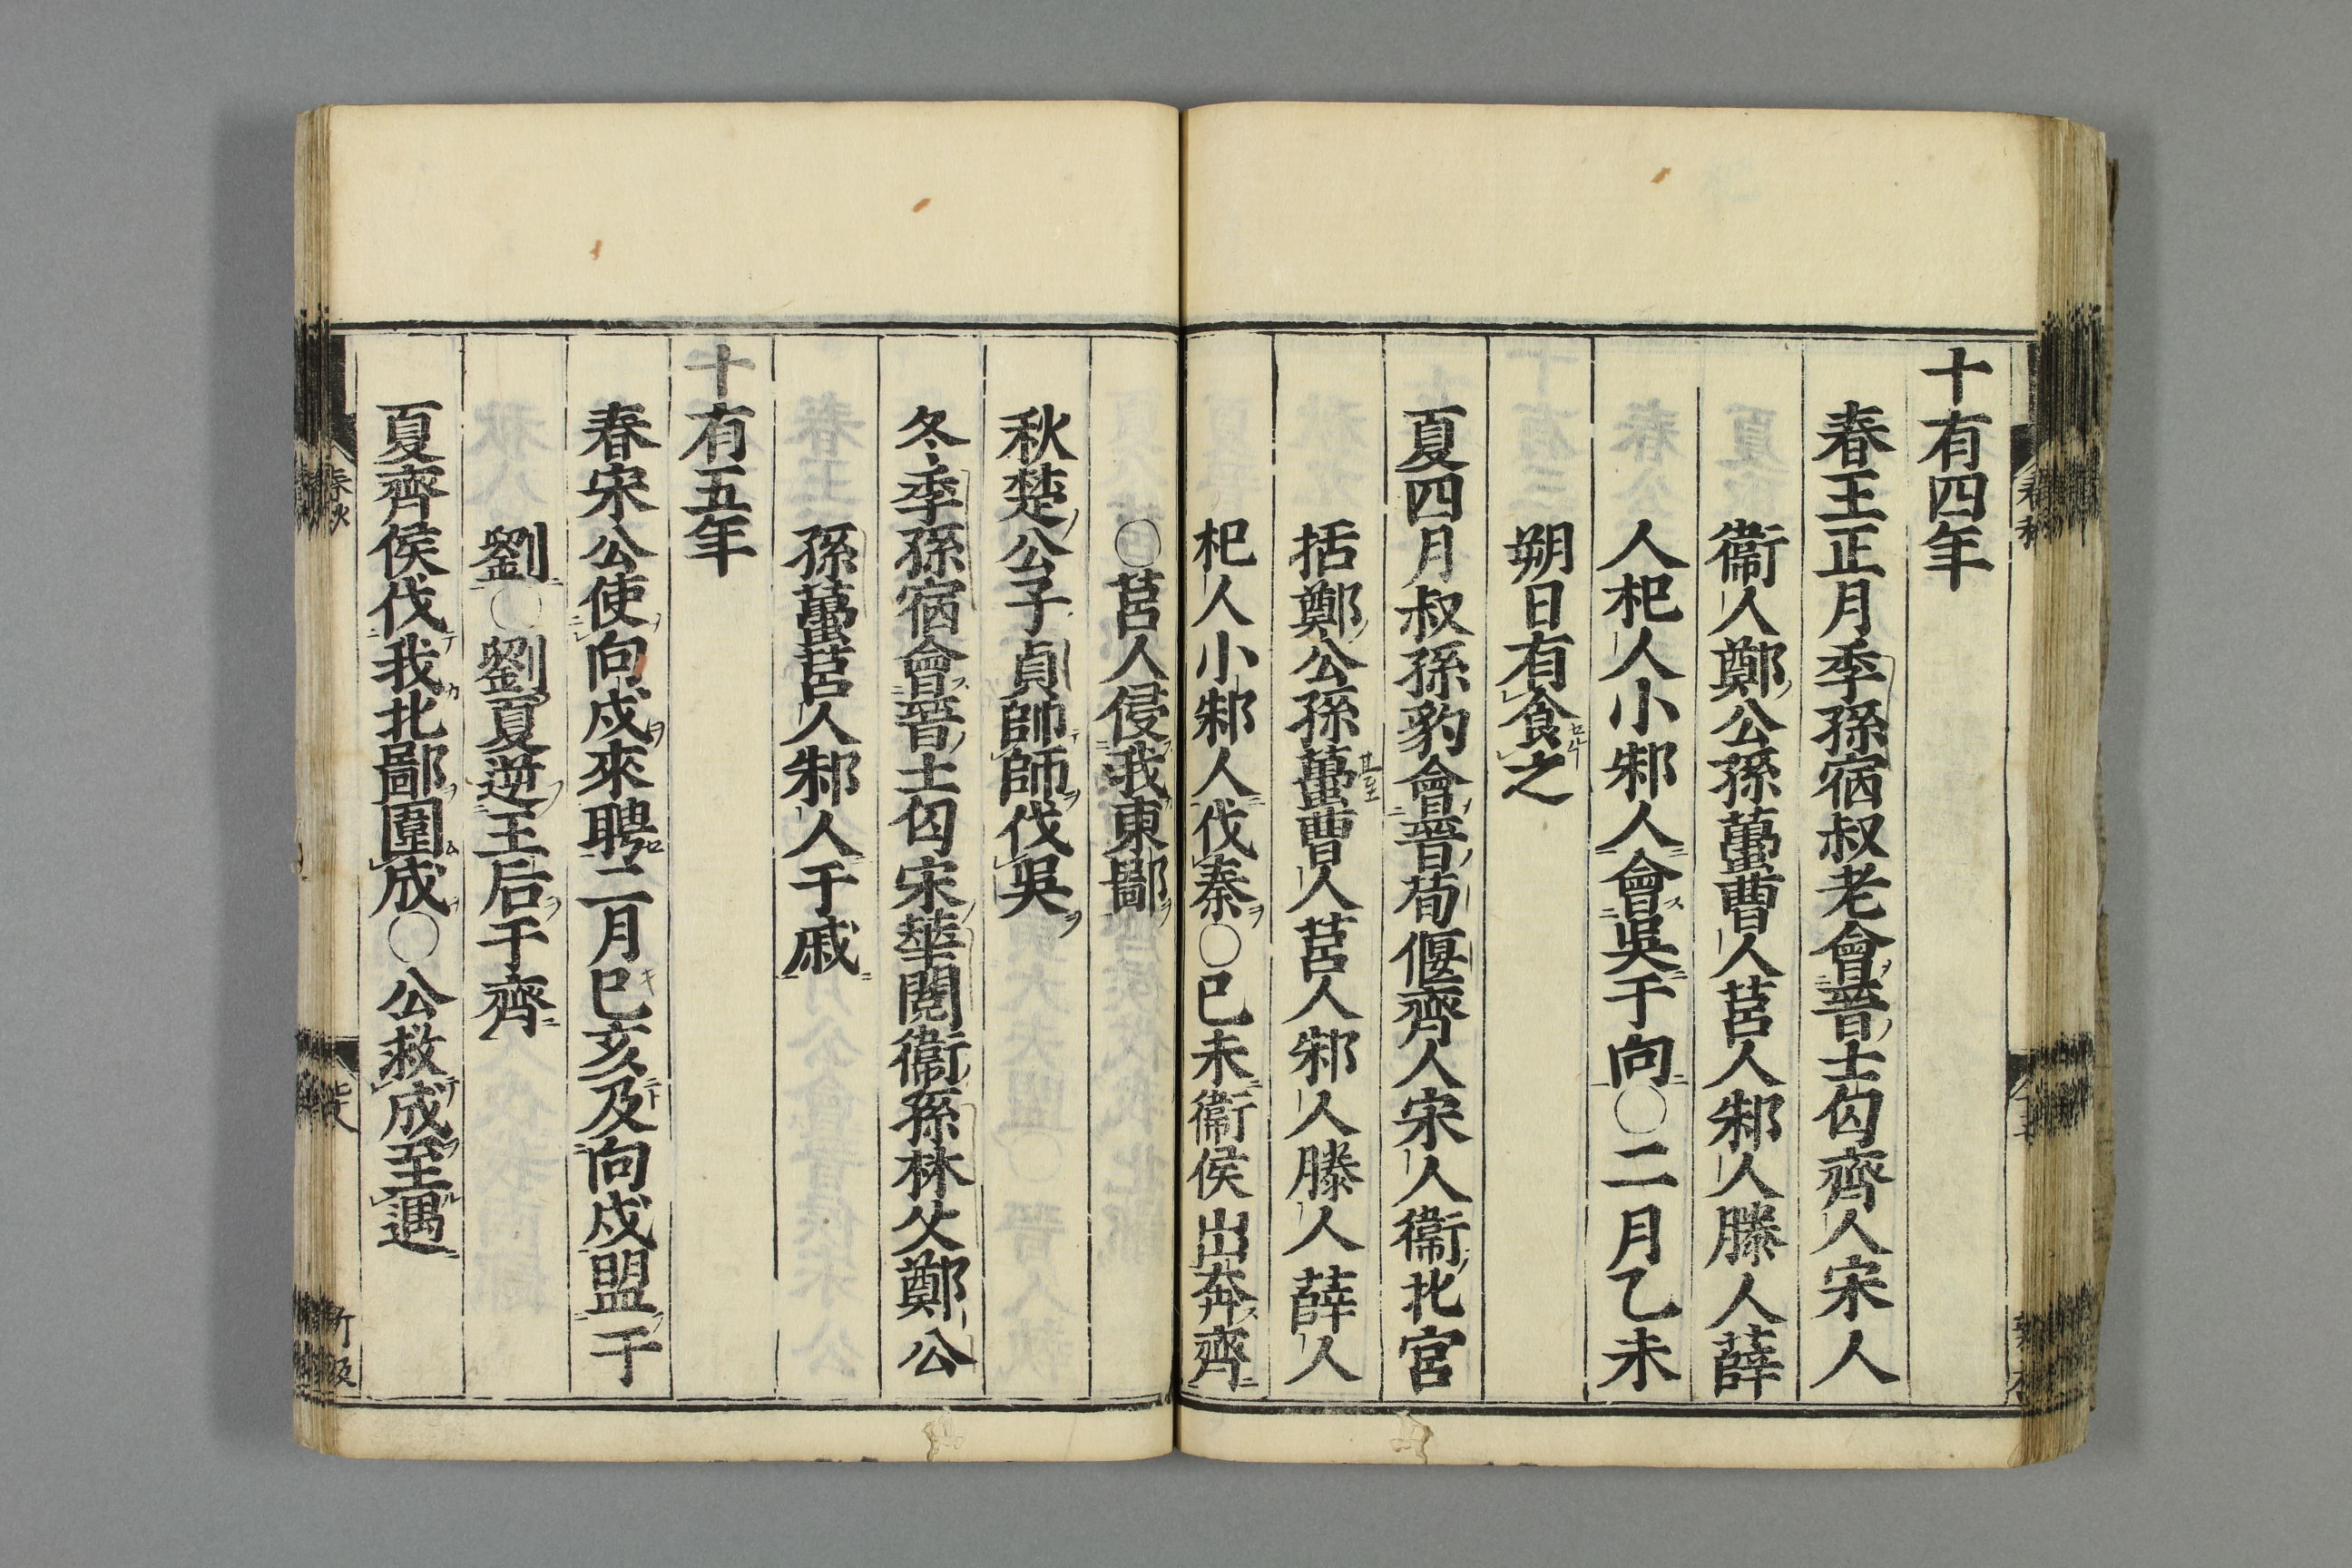 十有四年
春王正月季孫宿叔老會晉士匄齊人宋人
衞人鄭公孫蠆曹人莒人邾人滕人薛
人杞人小邾人會吳于向〇二月乙未
朔日有食之
夏四月叔孫豹會晉荀偃齊人宋人衞北宮
括鄭公孫蠆曹人莒人邾人滕人薛人
杞人小邾人伐秦〇己未衞侯出奔齊
〇莒人侵我東鄙
秋楚公子貞帥師伐吳
冬季孫宿會晉士匄宋華閱衞孫林父鄭公
孫蠆莒人邾人于戚
十有五年
春宋公使向戌來聘二月己亥及向戌盟于
劉〇劉夏逆王后于齊
夏齊侯伐我北鄙圍成〇公救成至遇
春秋